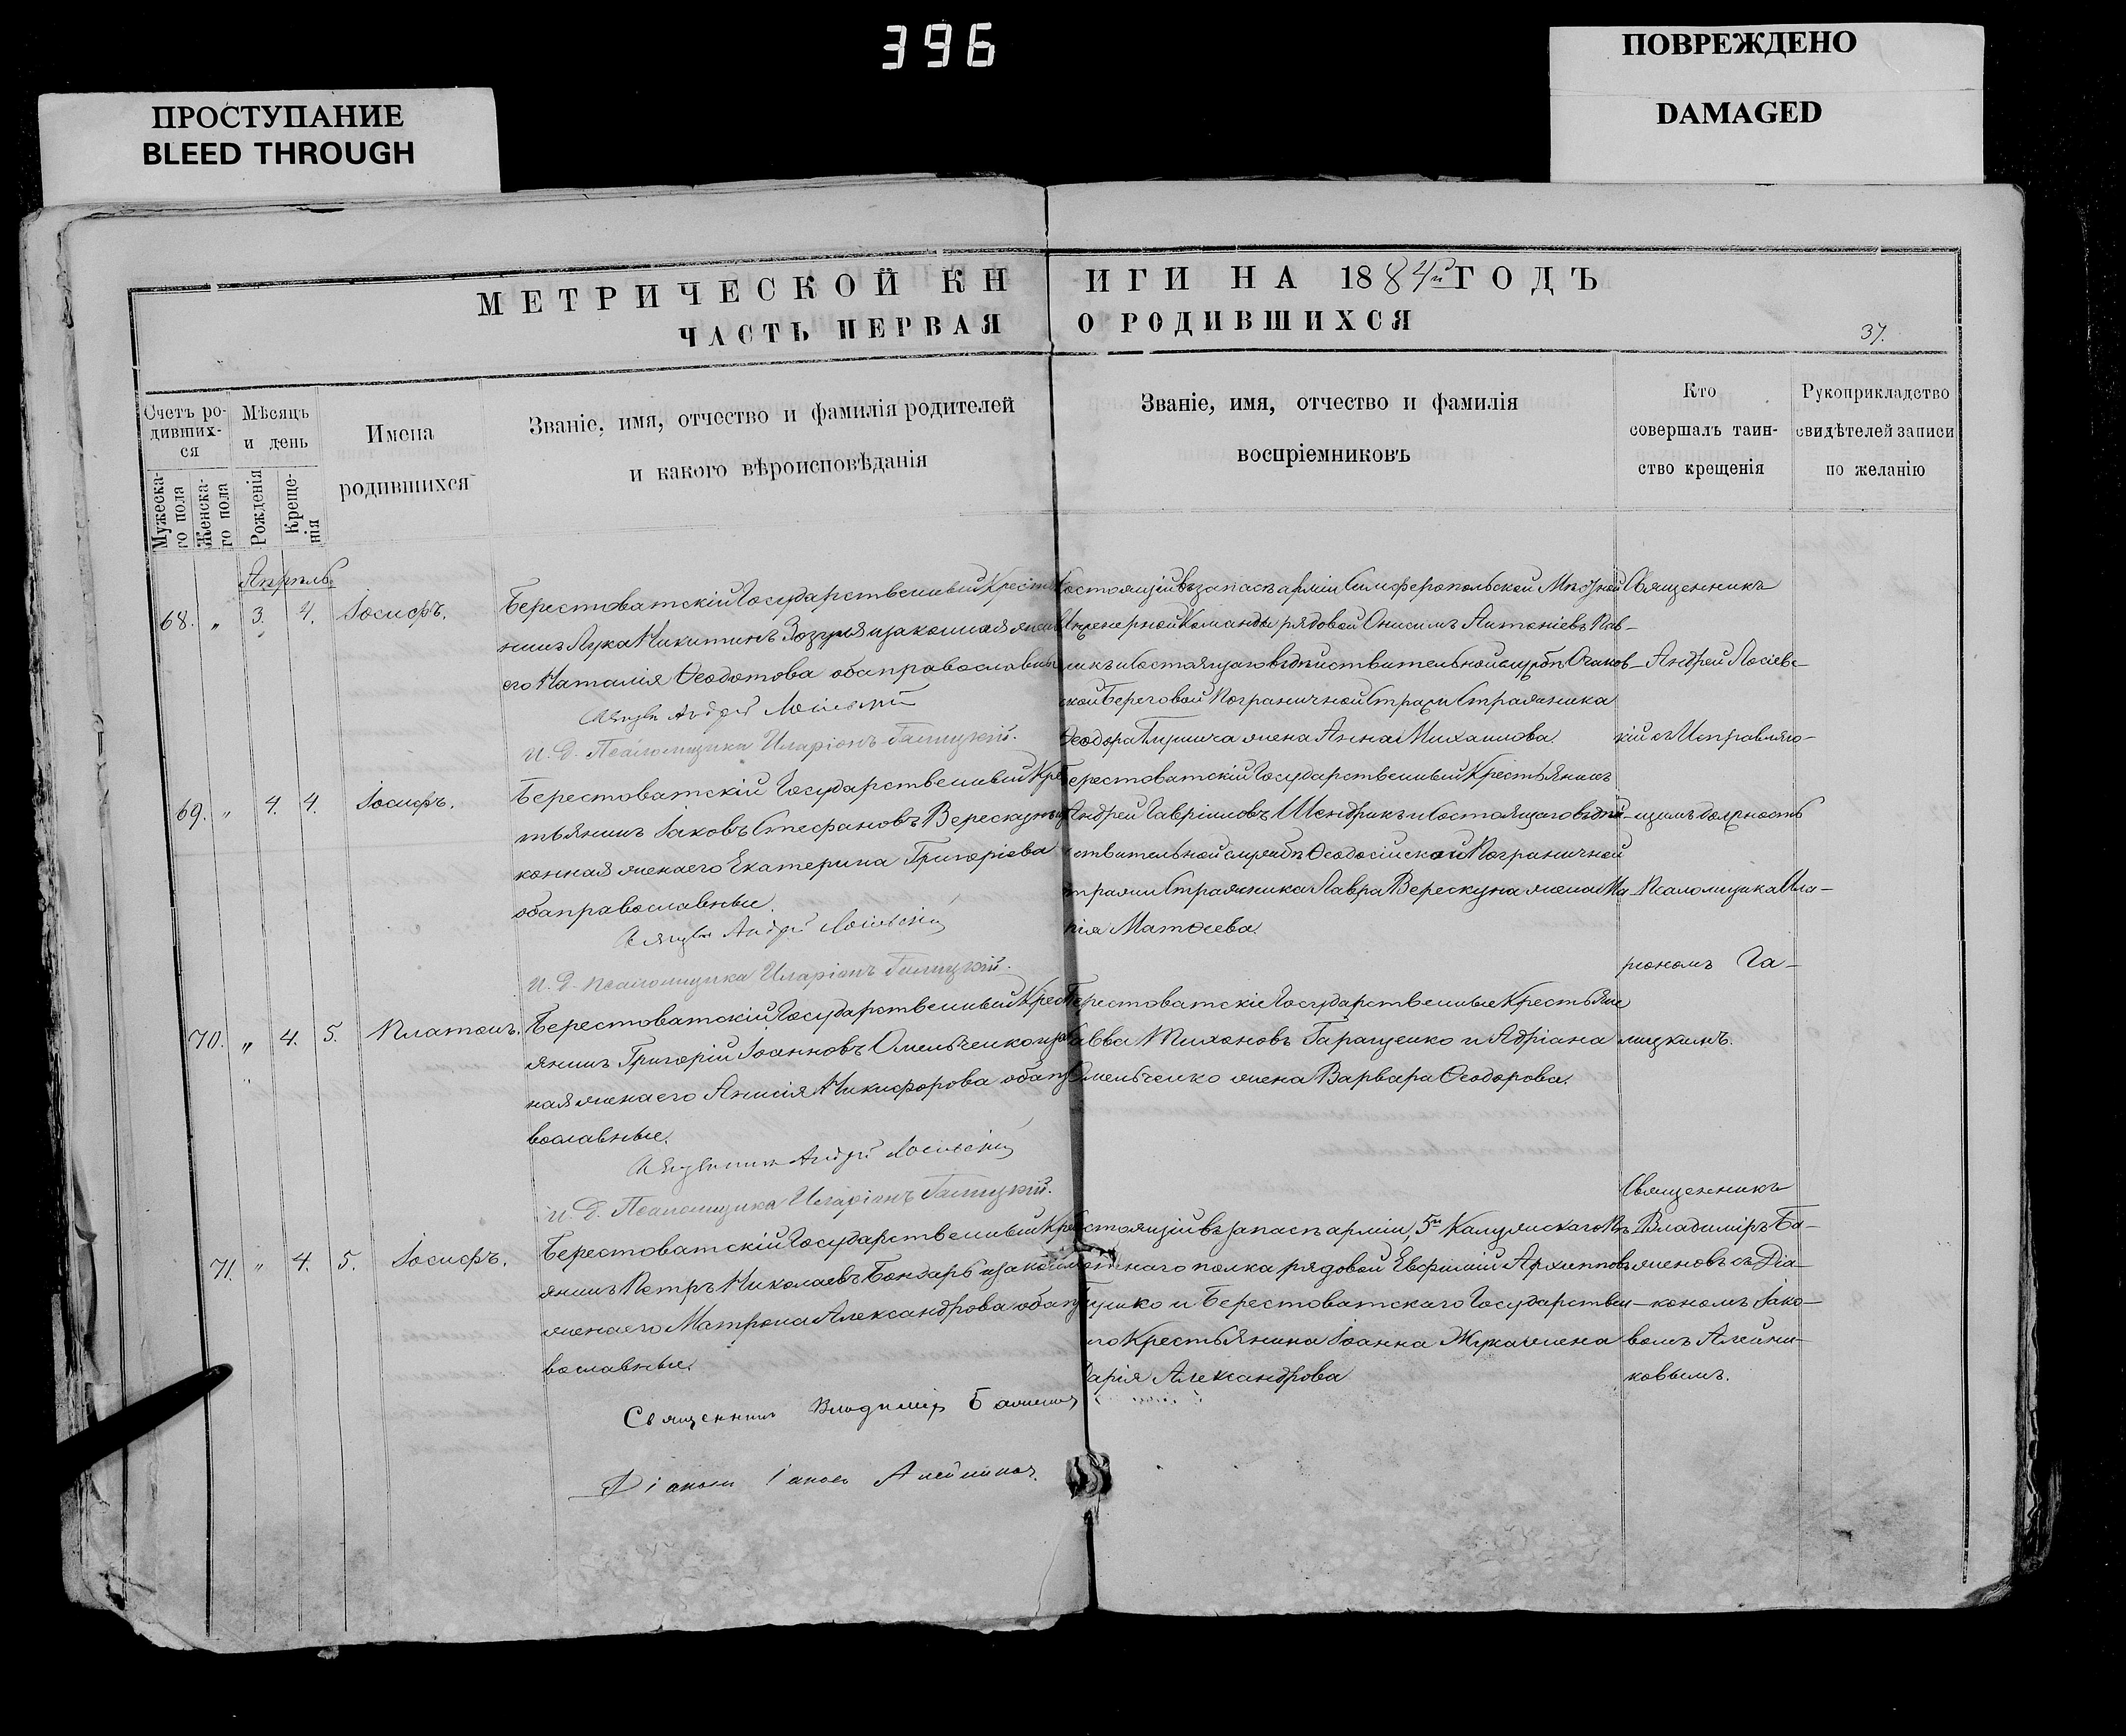 396
ПРОСТУПАНИЕ
BLEED THROUGH
ПОВРЕЖДЕНО
DAMAGED
МЕТРИЧЕСКОЙ КН
ИГИ НА 1884й ГОДЪ
ЧАСТЬ ПЕРВАЯ
О РОДИВШИХСЯ
37.
Счетъ ро-
дивших-
ся
Мужеска-
го пола
Женска-
го пола
Мѣсяцъ
и день
Рожденія
Креще-
нія
Имена
родившихся
Званіе, имя, отчество и фамилія родителей
и какого вѣроисповѣданія
Званіе, имя, отчество и фамилія
воспріемниковъ
Кто
совершалъ таин-
ство крещенія
Рукоприкладство
свидѣтелей записи
по желанію
Апрѣль
68. " 3. 4. Іосифъ.
Берестоватскій Государственный Крестья
нинъ Лука Никитинъ Зозуля и законная жена
его Наталія Ѳеодотова оба православные
Священ. Андрей Лосіевскій
И. Д. Псаломщика Иларіонъ Галицкій.
Состоящій въ запасѣ арміи Симферопольской Мѣстной
Инженерной Команды рядовой Онисимъ Антоніевъ Пав-
ликъ и Состоящаго въ дѣйствительной службѣ Очаков-
ской Береговой Пограничной Стражи Стражника
Ѳеодора жена Анна Михаилова.
Священникъ
Андрей Лосіевс-
кій съ Исправляю-
щимъ должность
Псаломщика Ила-
ріономъ Га-
лицкимъ.
69. " 4. 4. Іосифъ.
Берестоватскій Государственный Крес
тьянинъ Іаковъ Стефановъ Верескунъ и за
конная жена его Екатерина Григоріева
оба православные.
Священ. Андрей Лосіевскій
И. Д. Псаломщика Иларіонъ Галицкій.
Берестоватскій Государственный Крестьянинъ
Андрей Гавріиловъ Шендрикъ и Состоящаго въ дѣй-
ствительной службѣ Ѳеодосійской Пограничной
стражи Стражника Лавра Верескуна жена Ма
рія Матѳеева.
70. " 4. 5. Платонъ.
Берестоватскій Государственный Крест
янинъ Григорій Іоанновъ Омельченко и закон
ная жена его Анисія Никифорова оба пра
вославные.
Священникъ Андрей Лосіевскій
И. Д. Псаломщика Иларіонъ Галицкій.
Берестоватскіе Государственные Крестьяне
Савва Тихоновъ Гаращенко и Адріана
Омельченко жена Варвара Ѳеодорова.
71. " 4. 5. Іосифъ.
Берестоватскій Государственный Крест
янинъ Петръ Николаевъ Бондарь и законная
жена его Матрона Александрова оба пра
вославные.
Священникъ Владимір Баженов
Діаконъ Іаковъ Алейников.
Состоящій въ запасѣ арміи, 5го Калужскаго Пѣ
хотнаго полка рядовой Евфимій Архипповъ
и Берестоватскаго Государствен-
наго Крестьянина Іоанна Жука жена
Дарія Александрова
Священникъ
Владиміръ Ба-
женовъ съ Діа-
кономъ Іако-
вомъ Алейни-
ковымъ.